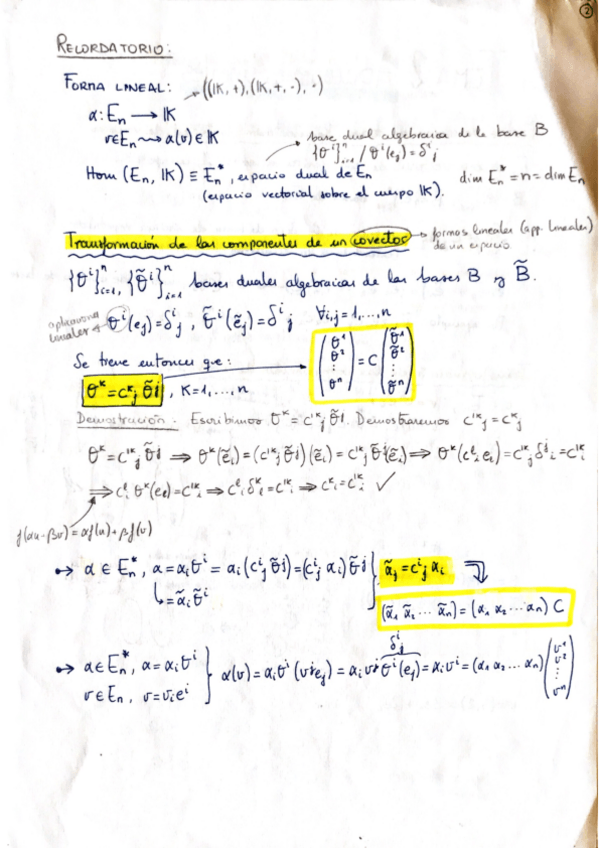 2
RECORDATORIO:
FORMA LINEAL: → ((K,+),(K,+,·),·)
α: Eₙ → K
v∈Eₙ ⇝ α(v)∈K
base dual algebraica de la base B
{θⁱ}ⁿᵢ₌₁ / θⁱ(eⱼ)=δⁱⱼ
Hom (Eₙ, K) ≡ Eₙ*, espacio dual de Eₙ
(espacio vectorial sobre el cuerpo K).
dim Eₙ* = n = dim Eₙ
Transformación de las componentes de un covector → formas lineales (app. lineales) de un espacio
{θⁱ}ⁿᵢ₌₁, {θ̃ⁱ}ⁿᵢ₌₁ bases duales algebraicas de las bases B y B̃.
aplicaciones lineales ← θⁱ(eⱼ)=δⁱⱼ, θ̃ⁱ(ẽⱼ)=δⁱⱼ ∀i,j=1,...,n
Se tiene entonces que:
(θ¹ θ² ⋮ θⁿ) = C (θ̃¹ θ̃² ⋮ θ̃ⁿ)
θᵏ = cᵏⱼ θ̃ʲ, K=1,...,n
Demostración.- Escribimos θᵏ = c'ᵏⱼ θ̃ʲ. Demostraremos c'ᵏⱼ = cᵏⱼ
θᵏ = c'ᵏⱼ θ̃ʲ ⇒ θᵏ(ẽᵢ) = (c'ᵏⱼ θ̃ʲ)(ẽᵢ) = c'ᵏⱼ θ̃ʲ(ẽᵢ) ⇒ θᵏ(cˡᵢ eₗ) = c'ᵏⱼ δʲᵢ = c'ᵏᵢ
⇒ cˡᵢ θᵏ(eₗ) = c'ᵏᵢ ⇒ cˡᵢ δᵏₗ = c'ᵏᵢ ⇒ cᵏᵢ = c'ᵏᵢ ✓
f(αu+βv) = αf(u)+βf(v)
→ α ∈ Eₙ*, α = αᵢθⁱ = αᵢ(cⁱⱼ θ̃ʲ) = (cⁱⱼ αᵢ) θ̃ʲ } α̃ⱼ = cⁱⱼ αᵢ
↳ = α̃ᵢ θ̃ⁱ
(α̃₁ α̃₂ ... α̃ₙ) = (α₁ α₂ ... αₙ) C
→ α∈Eₙ*, α = αᵢθⁱ
v∈Eₙ, v = vᵢeⁱ
} α(v) = αᵢθⁱ(vʲeⱼ) = αᵢvʲ θⁱ(eⱼ) = αᵢvⁱ = (α₁ α₂ ... αₙ) (v¹ v² ⋮ vⁿ)
δⁱⱼ